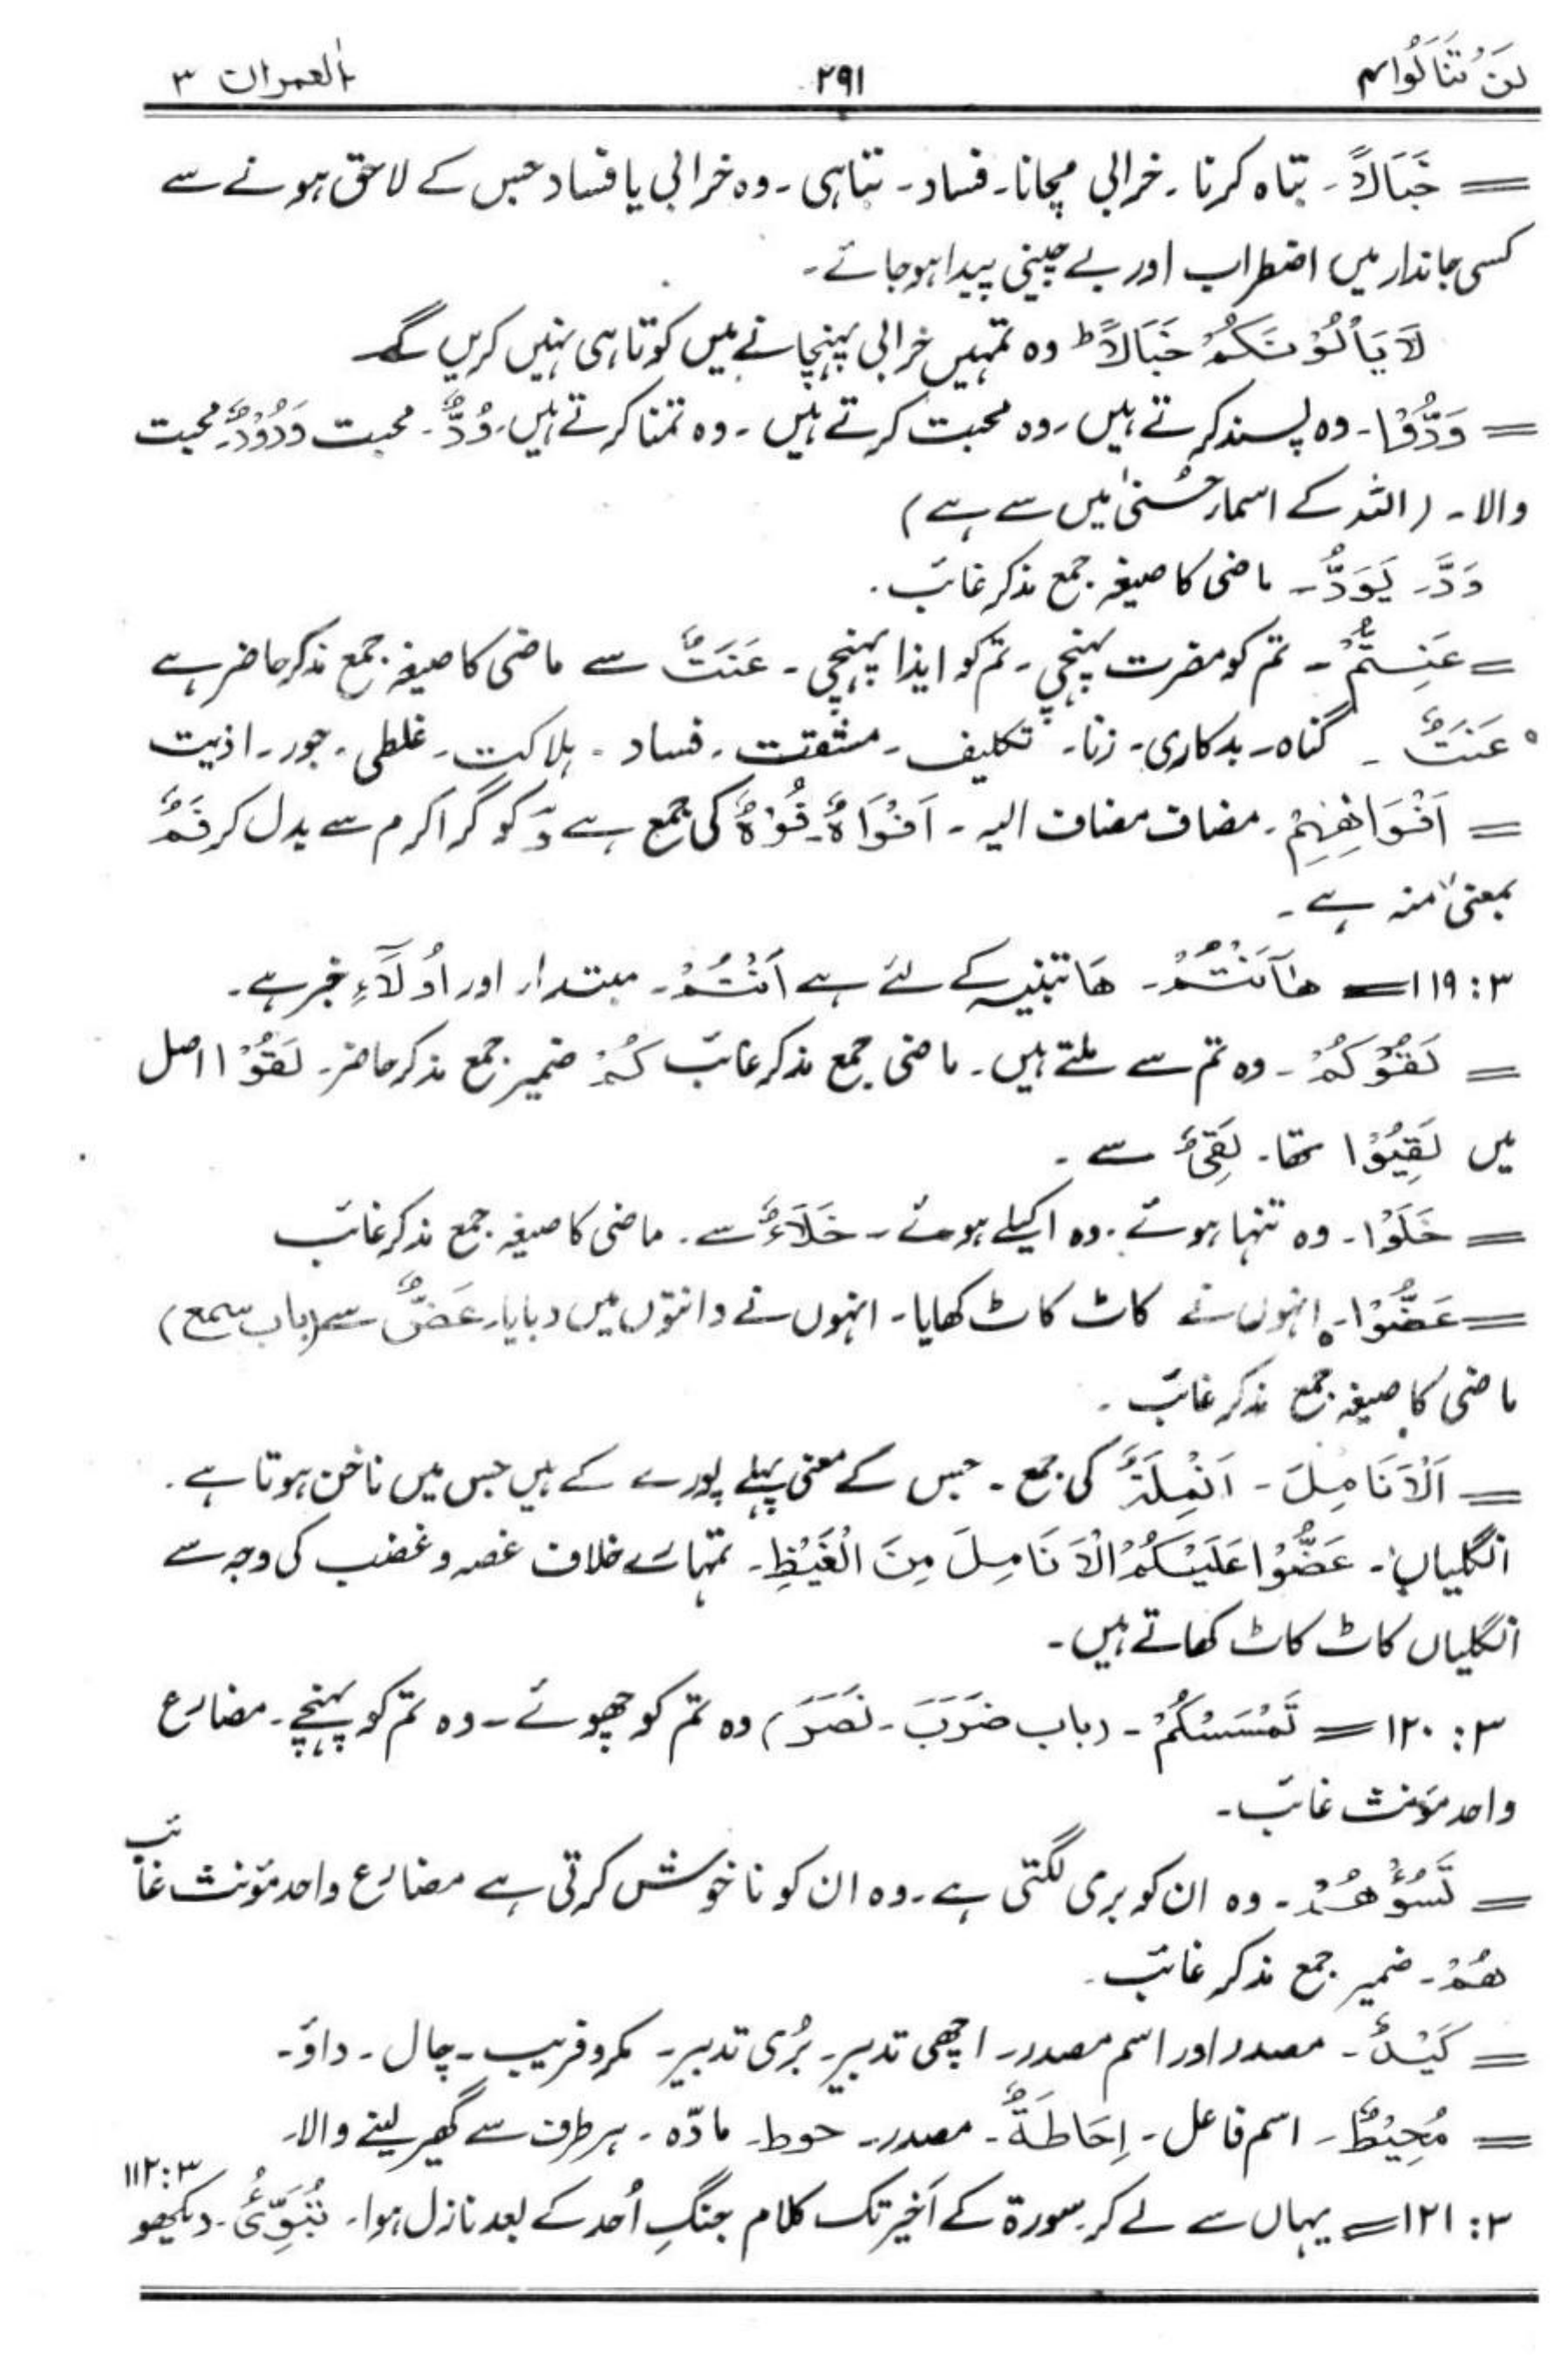 لَنْ تَنَالُوا۴ ۲۹۱ اٰلعمران ۳
= خَبَالًا۔ تباہ کرنا۔ خرابی مچانا۔ فساد۔ تباہی۔ وہ خرابی یا فساد جس کے لاحق ہونے سے
کسی جاندار میں اضطراب اور بے چینی پیدا ہو جائے۔
لَا یَاْلُوْنَکُمْ خَبَالًا ط وہ تمہیں خرابی پہنچانے میں کوتاہی نہیں کریں گے
= وَدُّوْا۔ وہ پسند کرتے ہیں۔ وہ محبت کرتے ہیں۔ وہ تمنا کرتے ہیں۔ وُدٌّ۔ محبت وَدُوْدٌ۔ محبت
والا۔ (اللہ کے اسمار حُسنیٰ میں سے ہے)
وَدَّ۔ یَوَدُّ۔ ماضی کا صیغہ جمع مذکر غائب۔
= عَنِتُّمْ۔ تم کو مضرت پہنچی۔ تم کو ایذا پہنچی۔ عَنَتٌ سے ماضی کا صیغہ جمع مذکر حاضر ہے
عَنَتٌ۔ گناہ۔ بدکاری۔ زنا۔ تکلیف۔ مشقت۔ فساد۔ ہلاکت۔ غلطی۔ جور۔ اذیت
= اَفْوَاهِهِمْ۔ مضاف مضاف الیہ۔ اَفْوَاہٌ۔ فُوْہٌ کی جمع ہے وٗ کو گرا کر م سے بدل کر فَمٌ
بمعنیٰ منہ ہے۔
۳: ۱۱۹ = هٰٓاَنْتُمْ۔ ھَا تنبیہ کے لئے ہے اَنْتُمْ۔ مبتدار اور اُولَآءِ خبر ہے۔
= لَقُوْکُمْ۔ وہ تم سے ملتے ہیں۔ ماضی جمع مذکر غائب کُمْ ضمیر جمع مذکر حاضر۔ لَقُوْا اصل
میں لَقِیُوْا تھا۔ لَقِیٌ سے۔
= خَلَوْا۔ وہ تنہا ہوئے۔ وہ اکیلے ہوئے۔ خَلَاءٌ سے۔ ماضی کا صیغہ جمع مذکر غائب
= عَضُّوْا۔ انہوں نے کاٹ کاٹ کھایا۔ انہوں نے دانتوں میں دبایا۔ عَضٌّ سے (باب سمع)
ماضی کا صیغہ جمع مذکر غائب۔
= اَلْاَنَامِلَ۔ اَنْمِلَۃٌ کی جمع۔ جس کے معنی پہلے پورے کے ہیں جس میں ناخن ہوتا ہے۔
انگلیاں۔ عَضُّوْا عَلَیْکُمُ الْاَنَامِلَ مِنَ الْغَیْظِ۔ تمہارے خلاف غصہ و غضب کی وجہ سے
انگلیاں کاٹ کاٹ کھاتے ہیں۔
۳: ۱۲۰ = تَمْسَسْکُمْ۔ (باب ضَرَبَ۔ نَصَرَ) وہ تم کو چھوئے۔ وہ تم کو پہنچے۔ مضارع
واحد مؤنث غائب۔
= تَسُؤْهُمْ۔ وہ ان کو بری لگتی ہے۔ وہ ان کو ناخوش کرتی ہے مضارع واحد مؤنث غائب
هُمْ۔ ضمیر جمع مذکر غائب۔
= کَیْدٌ۔ مصدر اور اسم مصدر۔ اچھی تدبیر۔ بُری تدبیر۔ مکر و فریب۔ چال۔ داؤ۔
= مُحِیْطٌ۔ اسم فاعل۔ اِحَاطَۃٌ۔ مصدر۔ حوط۔ مادّہ۔ ہر طرف سے گھیر لینے والا۔
۳: ۱۲۱ = یہاں سے لے کر سورۃ کے اَخیر تک کلام جنگِ اُحد کے بعد نازل ہوا۔ تُبَوِّئُ۔ دیکھو ۳: ۱۱۲